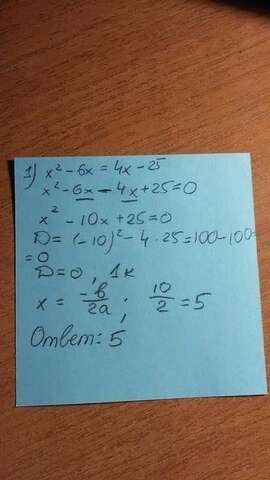 1) x² - 6x = 4x - 25
x² - 6x - 4x + 25 = 0
x² - 10x + 25 = 0
D = (-10)² - 4 · 25 = 100 - 100 =
= 0
D = 0, 1к
x = -b/2a ; 10/2 = 5
Ответ: 5